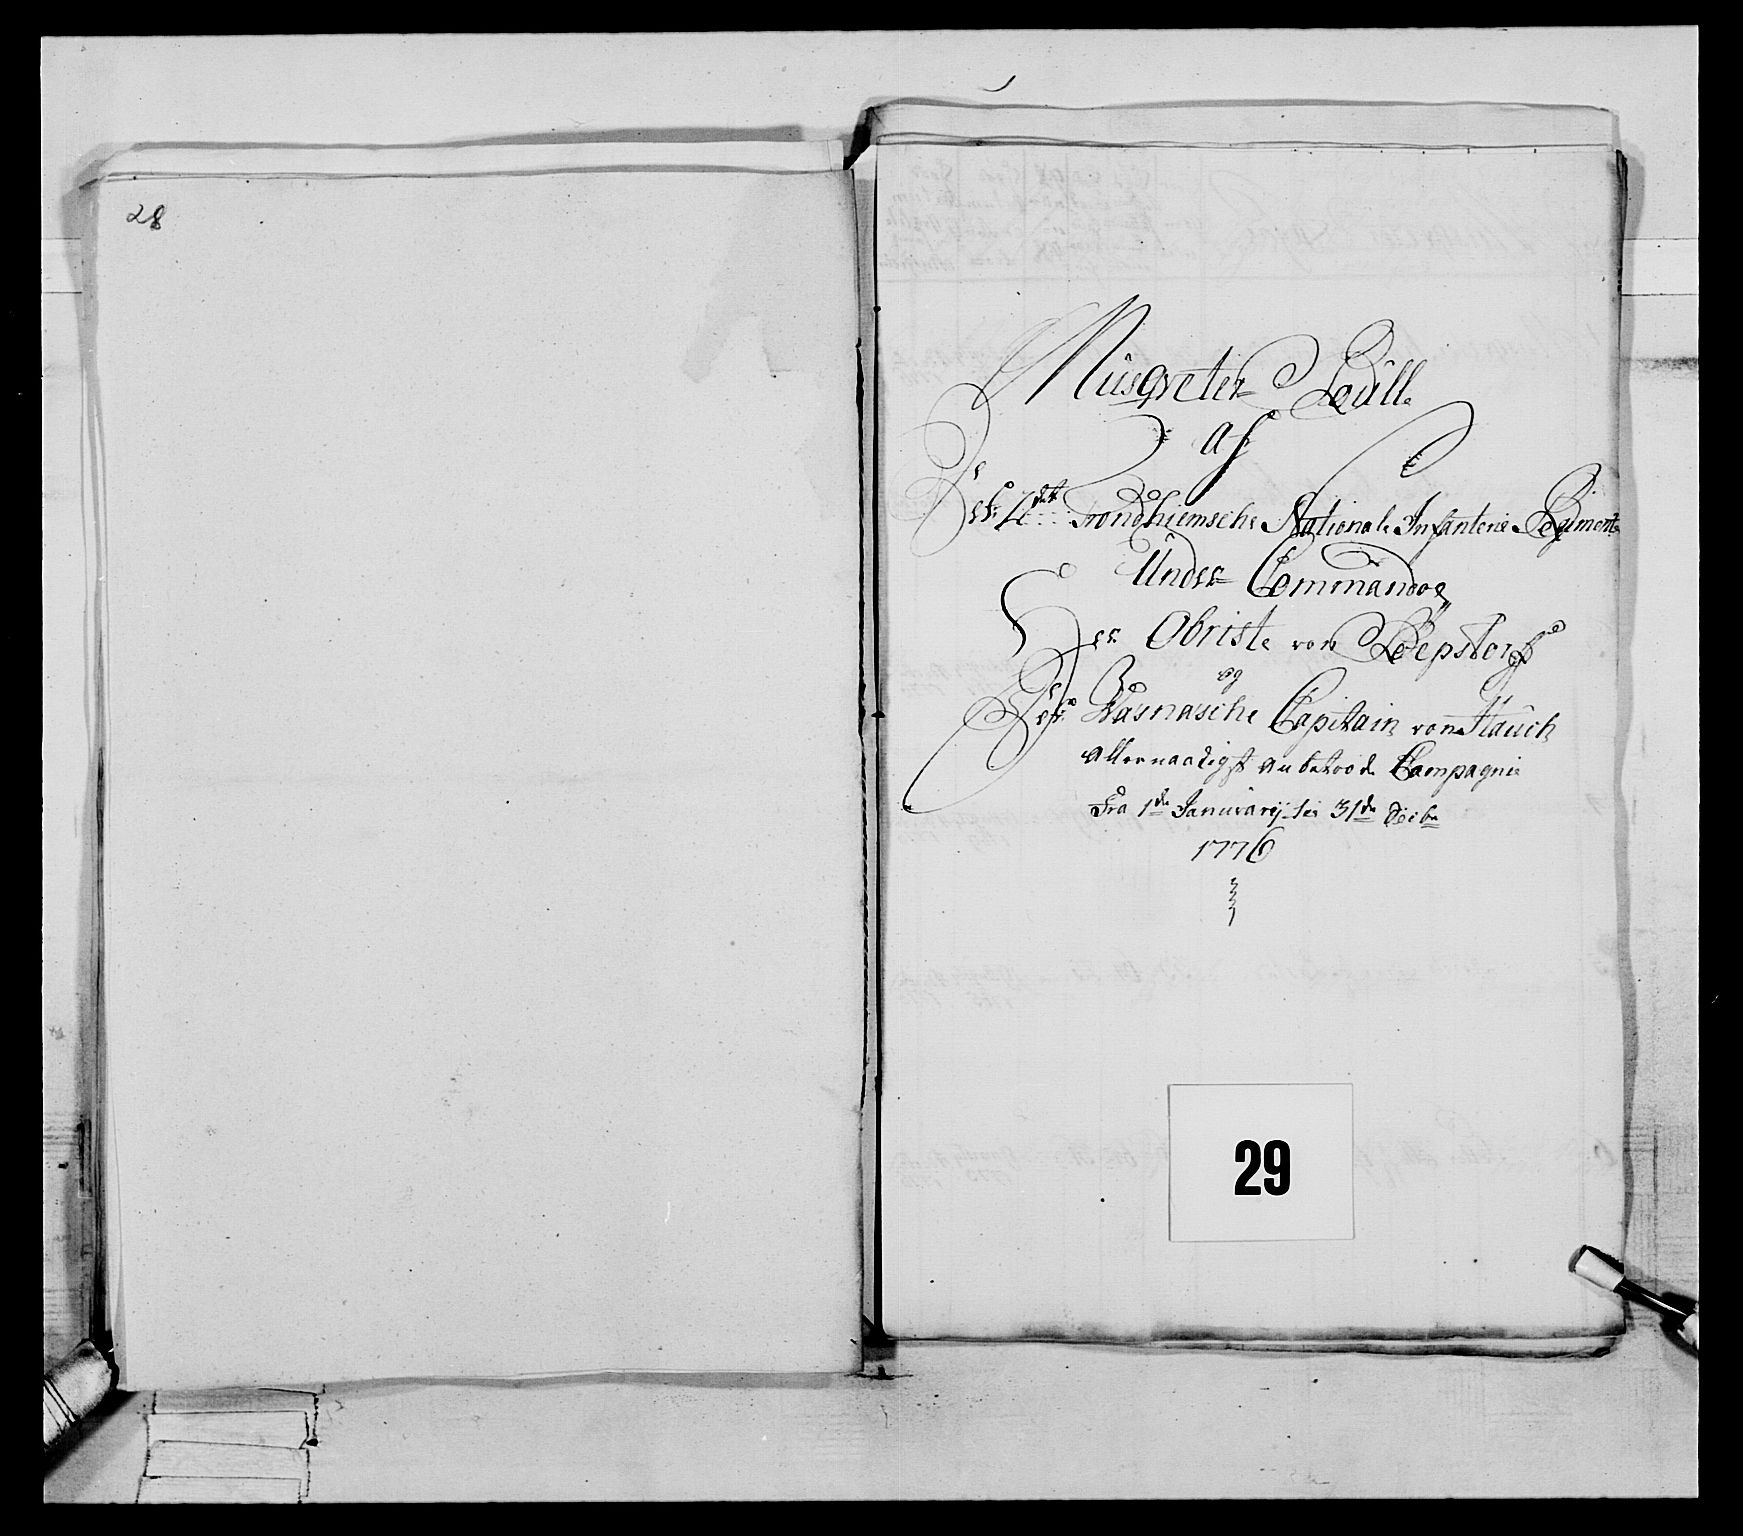 28
Müsqveteer Rúll
af
Det 2det Trondhiemsche National Infanterie Regiment
Ünder Commando
Herr Obriste von Repstorff
og
Det Wæsnæsche Capitain von Haüch
allernaadigst anbetroede Compagnie
Fra 1de Januarij til 31de Decbr
1776
29